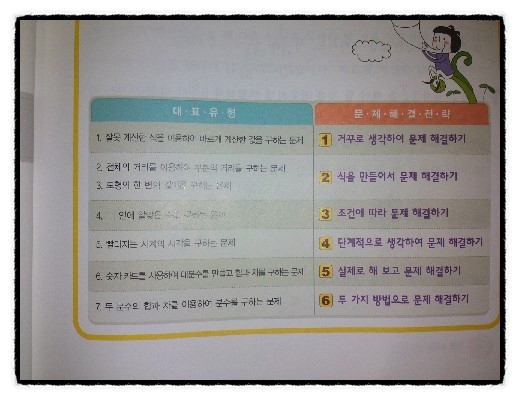 대·표·유·형
문·제·해·결·전·략
1. 잘못 계산한 식을 이용하여 바르게 계산한 값을 구하는 문제
1 거꾸로 생각하여 문제 해결하기
2. 전체의 거리를 이용하여 부분의 거리를 구하는 문제
3. 도형의 한 변의 길이를 구하는 문제
2 식을 만들어서 문제 해결하기
4. □ 안에 알맞은 수를 구하는 문제
3 조건에 따라 문제 해결하기
5. 빨라지는 시계의 시각을 구하는 문제
4 단계적으로 생각하여 문제 해결하기
6. 숫자 카드를 사용하여 대분수를 만들고 합과 차를 구하는 문제
5 실제로 해 보고 문제 해결하기
7. 두 분수의 합과 차를 이용하여 분수를 구하는 문제
6 두 가지 방법으로 문제 해결하기